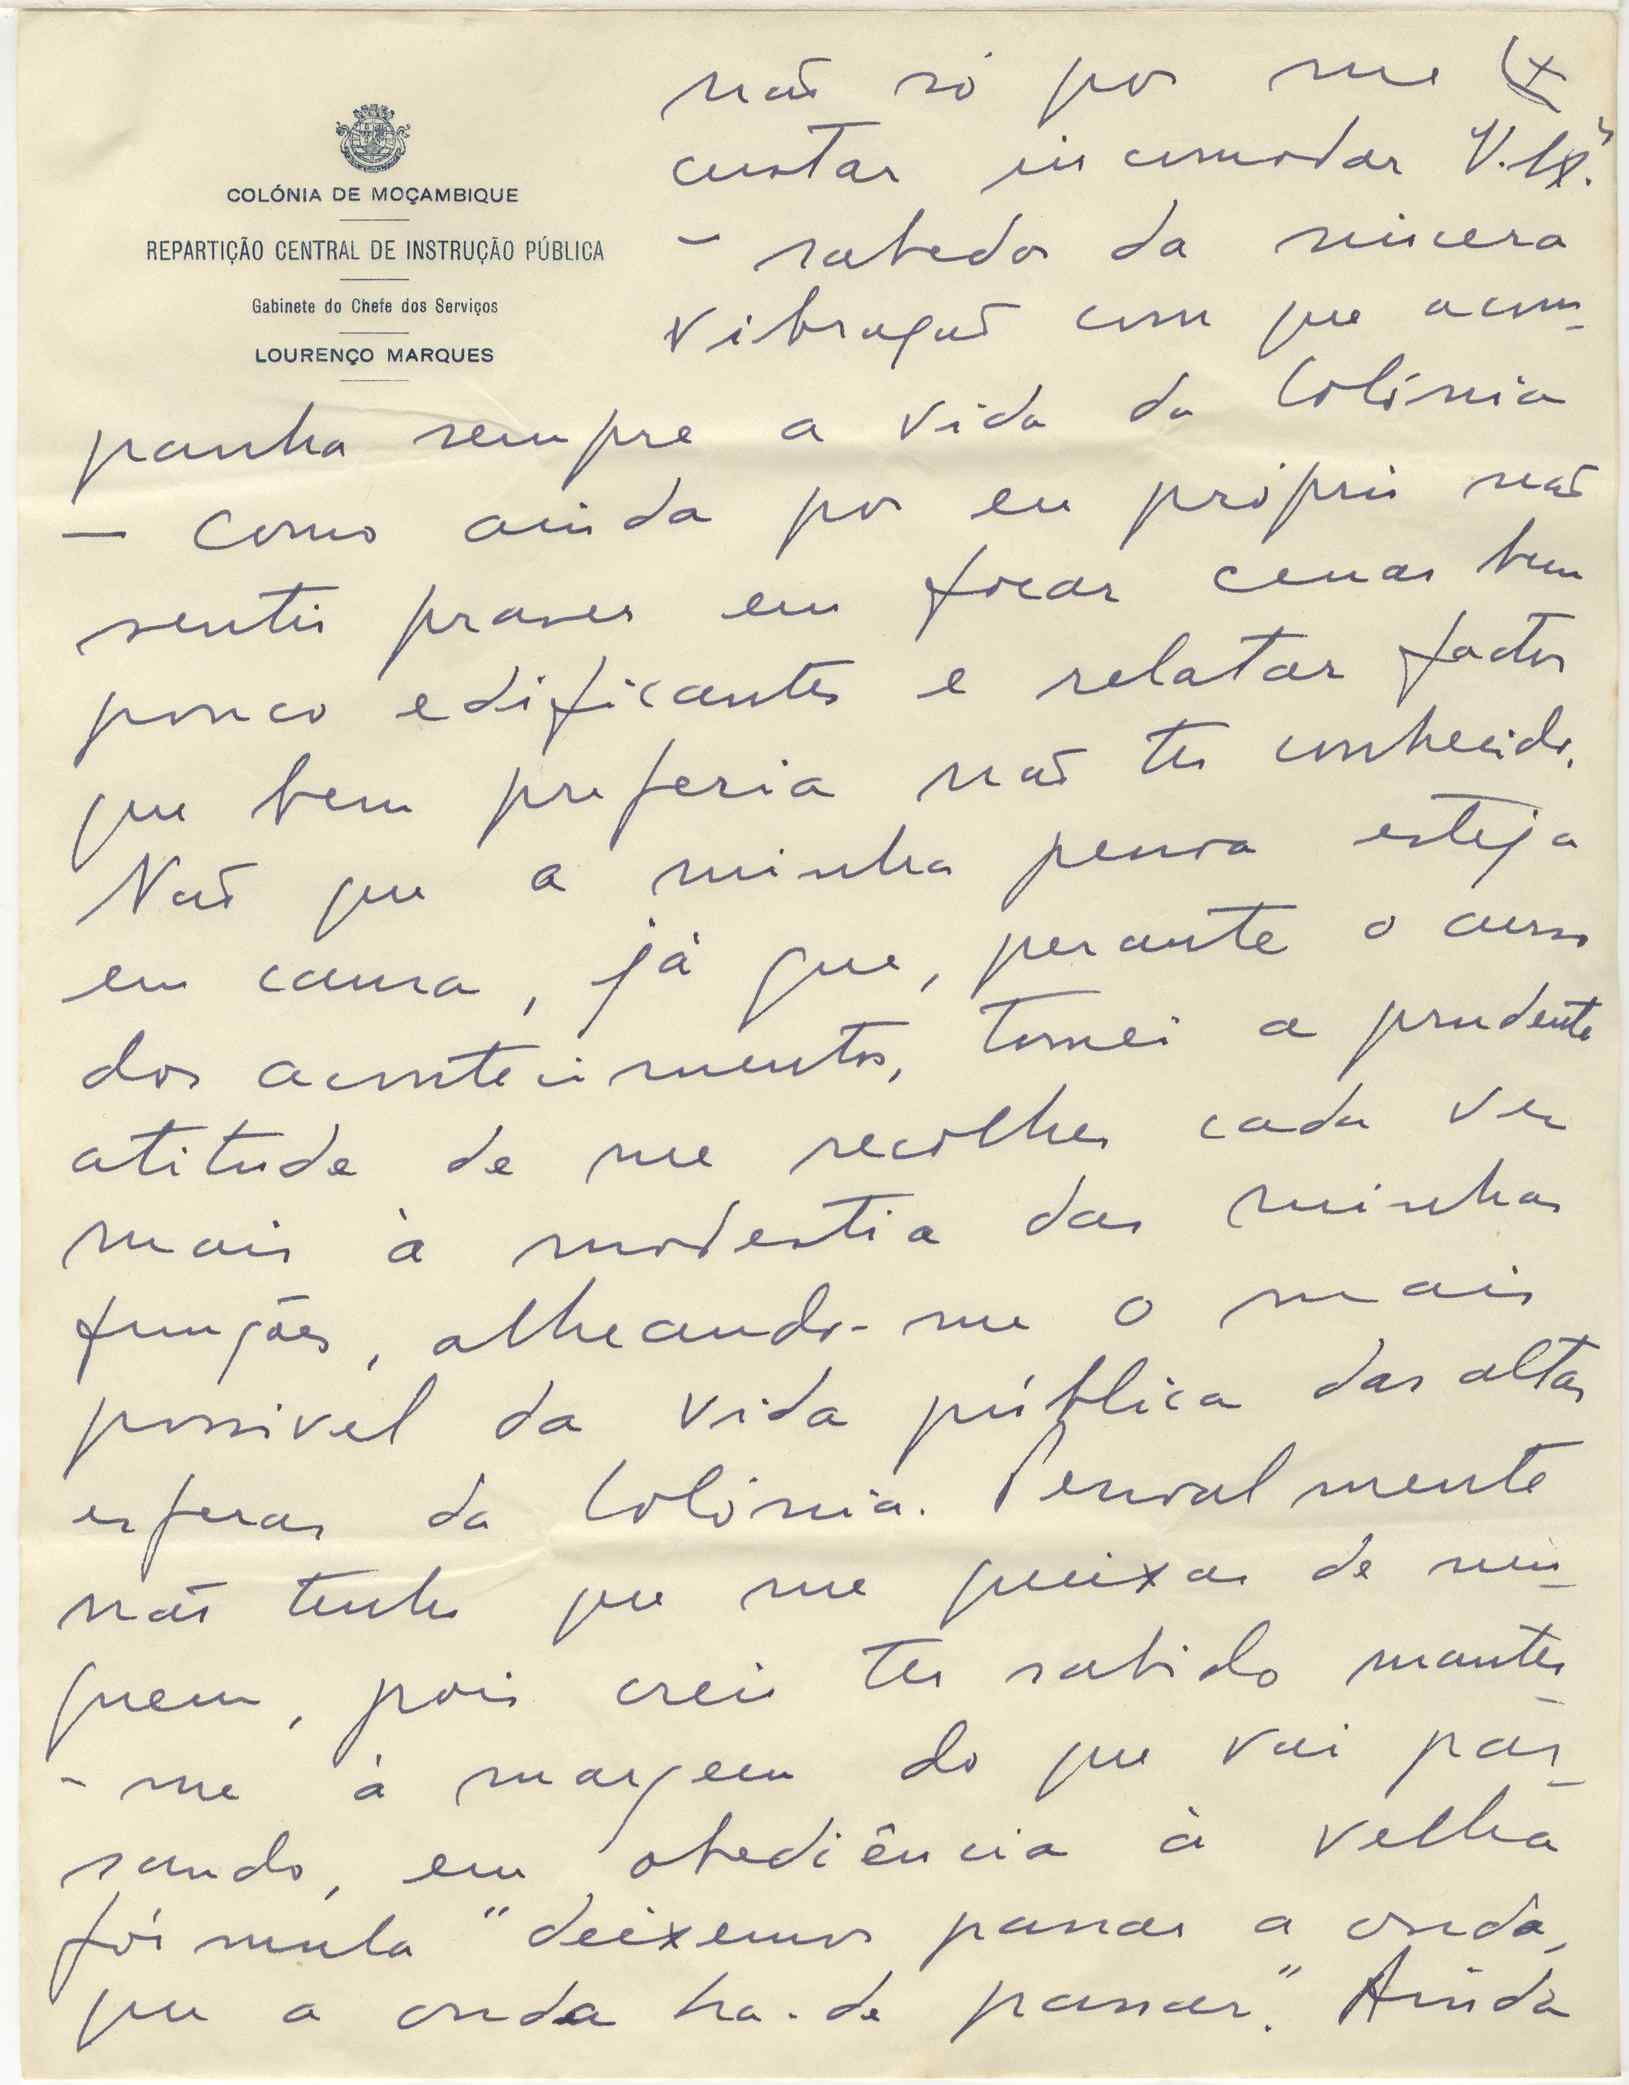 COLÓNIA DE MOÇAMBIQUE
REPARTIÇÃO CENTRAL DE INSTRUÇÃO PÚBLICA
Gabinete do Chefe dos Serviços
LOURENÇO MARQUES
não só por me
custar incomodar V. Exª
- sabedor da sincera
vibração com que acom-
panha sempre a vida da Colónia
- como ainda por eu próprio não
sentir prazer em focar cenas bem
pouco edificantes e relatar factos
que bem preferia não ter conhecido.
Não que a minha pessoa esteja
em causa, já que, perante o curso
dos acontecimentos, tomei a prudente
atitude de me recolher cada vez
mais à modestia das minhas
funções, alheando-me o mais
possivel da vida pública das altas
esferas da Colónia. Pessoalmente
não tenho que me queixar de nin-
guem, pois creio ter sabido manter-
-me à margem do que vai pas-
sando, em obediência à velha
fórmula "deixemos passar a onda,
que a onda ha-de passar." Ainda